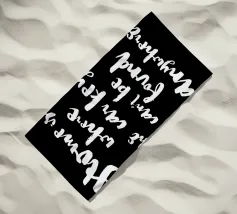 Home is
where
can key
can't be
found
anywhere